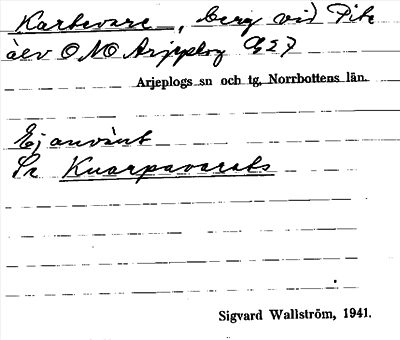 Kartevare, berg vid Pite
älv ONO Arjeplog GE27
Arjeplogs sn och tg, Norrbottens län.
Ej använt
Se Kuarpavarats
Sigvard Wallström, 1941.